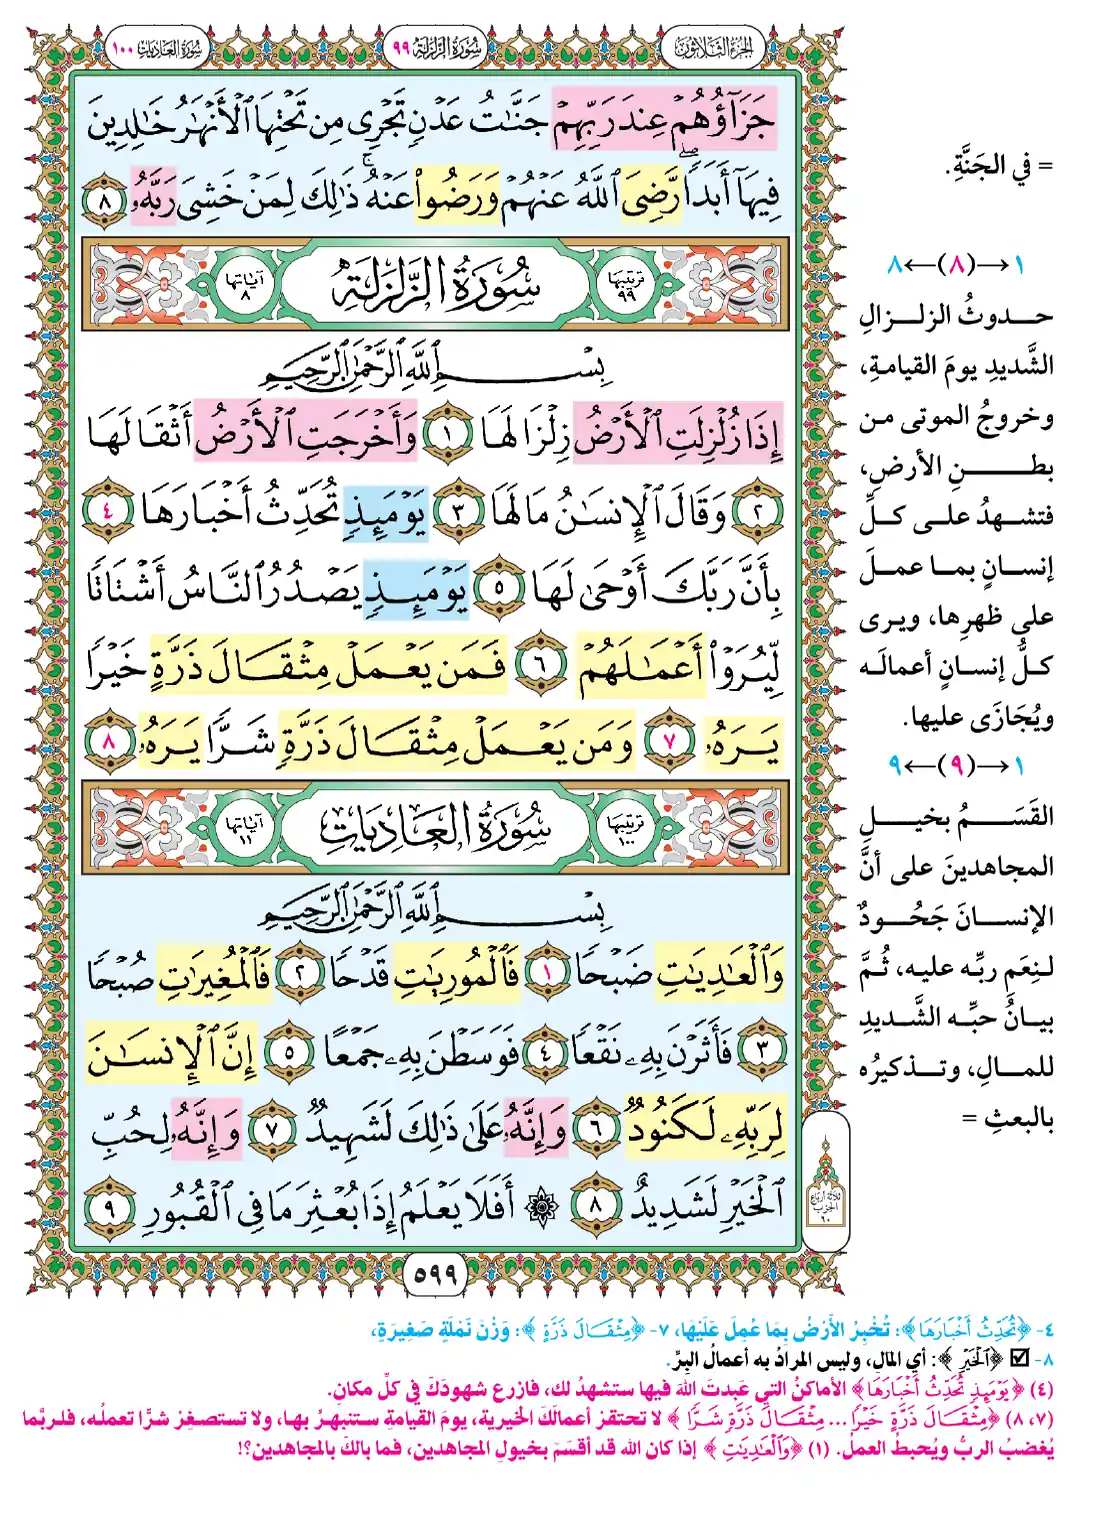 الجزء الثلاثون
سورة الزلزلة ٩٩
سورة العاديات ١٠٠
جَزَآؤُهُمْ عِندَ رَبِّهِمْ جَنَّٰتُ عَدْنٍ تَجْرِى مِن تَحْتِهَا ٱلْأَنْهَٰرُ خَٰلِدِينَ
فِيهَآ أَبَدًا ۖ رَّضِىَ ٱللَّهُ عَنْهُمْ وَرَضُوا۟ عَنْهُ ۚ ذَٰلِكَ لِمَنْ خَشِىَ رَبَّهُۥ ٨
ترتيبها ٩٩
سُورَةُ الزَّلْزَلَةِ
آياتها ٨
بِسْمِ ٱللَّهِ ٱلرَّحْمَٰنِ ٱلرَّحِيمِ
إِذَا زُلْزِلَتِ ٱلْأَرْضُ زِلْزَالَهَا ١ وَأَخْرَجَتِ ٱلْأَرْضُ أَثْقَالَهَا
٢ وَقَالَ ٱلْإِنسَٰنُ مَا لَهَا ٣ يَوْمَئِذٍ تُحَدِّثُ أَخْبَارَهَا ٤
بِأَنَّ رَبَّكَ أَوْحَىٰ لَهَا ٥ يَوْمَئِذٍ يَصْدُرُ ٱلنَّاسُ أَشْتَاتًا
لِّيُرَوْا۟ أَعْمَٰلَهُمْ ٦ فَمَن يَعْمَلْ مِثْقَالَ ذَرَّةٍ خَيْرًا
يَرَهُۥ ٧ وَمَن يَعْمَلْ مِثْقَالَ ذَرَّةٍ شَرًّا يَرَهُۥ ٨
ترتيبها ١٠٠
سُورَةُ العَادِيَاتِ
آياتها ١١
بِسْمِ ٱللَّهِ ٱلرَّحْمَٰنِ ٱلرَّحِيمِ
وَٱلْعَٰدِيَٰتِ ضَبْحًا ١ فَٱلْمُورِيَٰتِ قَدْحًا ٢ فَٱلْمُغِيرَٰتِ صُبْحًا
٣ فَأَثَرْنَ بِهِۦ نَقْعًا ٤ فَوَسَطْنَ بِهِۦ جَمْعًا ٥ إِنَّ ٱلْإِنسَٰنَ
لِرَبِّهِۦ لَكَنُودٌ ٦ وَإِنَّهُۥ عَلَىٰ ذَٰلِكَ لَشَهِيدٌ ٧ وَإِنَّهُۥ لِحُبِّ
ٱلْخَيْرِ لَشَدِيدٌ ٨ ۞ أَفَلَا يَعْلَمُ إِذَا بُعْثِرَ مَا فِى ٱلْقُبُورِ ٩
ثلاثة أرباع
الحزب
٦٠
٥٩٩
= في الجَنَّةِ.
١→(٨)←٨
حدوثُ الزلزالِ
الشَّديدِ يومَ القيامةِ،
وخروجُ الموتى من
بطنِ الأرضِ،
فتشهدُ على كلِّ
إنسانٍ بما عملَ
على ظهرِها، ويرى
كلُّ إنسانٍ أعمالَه
ويُجَازَى عليها.
١→(٩)←٩
القَسَمُ بخيلِ
المجاهدينَ على أنَّ
الإنسانَ جَحُودٌ
لنِعَمِ ربِّه عليه، ثُمَّ
بيانُ حبِّه الشَّديدِ
للمالِ، وتذكيرُه
بالبعثِ =
٤- ﴿تُحَدِّثُ أَخْبَارَهَا﴾: تُخْبِرُ الأَرْضُ بِمَا عُمِلَ عَلَيْهَا، ٧- ﴿مِثْقَالَ ذَرَّةٍ﴾: وَزْنَ نَمْلَةٍ صَغِيرَةٍ،
٨- ☑ ﴿ٱلْخَيْرِ﴾: أي المالِ، وليس المرادُ به أعمالُ البِرِّ.
(٤) ﴿يَوْمَئِذٍ تُحَدِّثُ أَخْبَارَهَا﴾ الأماكنُ التي عَبدتَ اللهَ فيها ستشهدُ لك، فازرع شهودَكَ في كلِّ مكانٍ.
(٧، ٨) ﴿مِثْقَالَ ذَرَّةٍ خَيْرًا ... مِثْقَالَ ذَرَّةٍ شَرًّا﴾ لا تحتقرْ أعمالَكَ الخيرية، يومَ القيامةِ ستنبهرُ بها، ولا تستصغِرْ شرًّا تعملُه، فلربَّما
يُغضبُ الربَّ ويُحبطُ العملَ. (١) ﴿وَٱلْعَٰدِيَٰتِ﴾ إذا كان الله قد أقسَمَ بخيولِ المجاهدين، فما بالكَ بالمجاهدين؟!